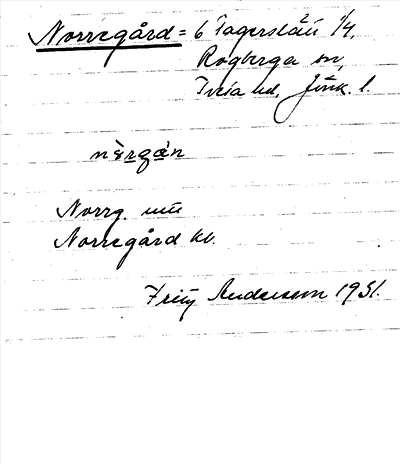 Norregård = 6 Tagerslätt 1/4,
Rogberga sn,
Tveta hd, Jönk. l.
Norrg.
Norregård kl.
Fritz Andersson 1931.